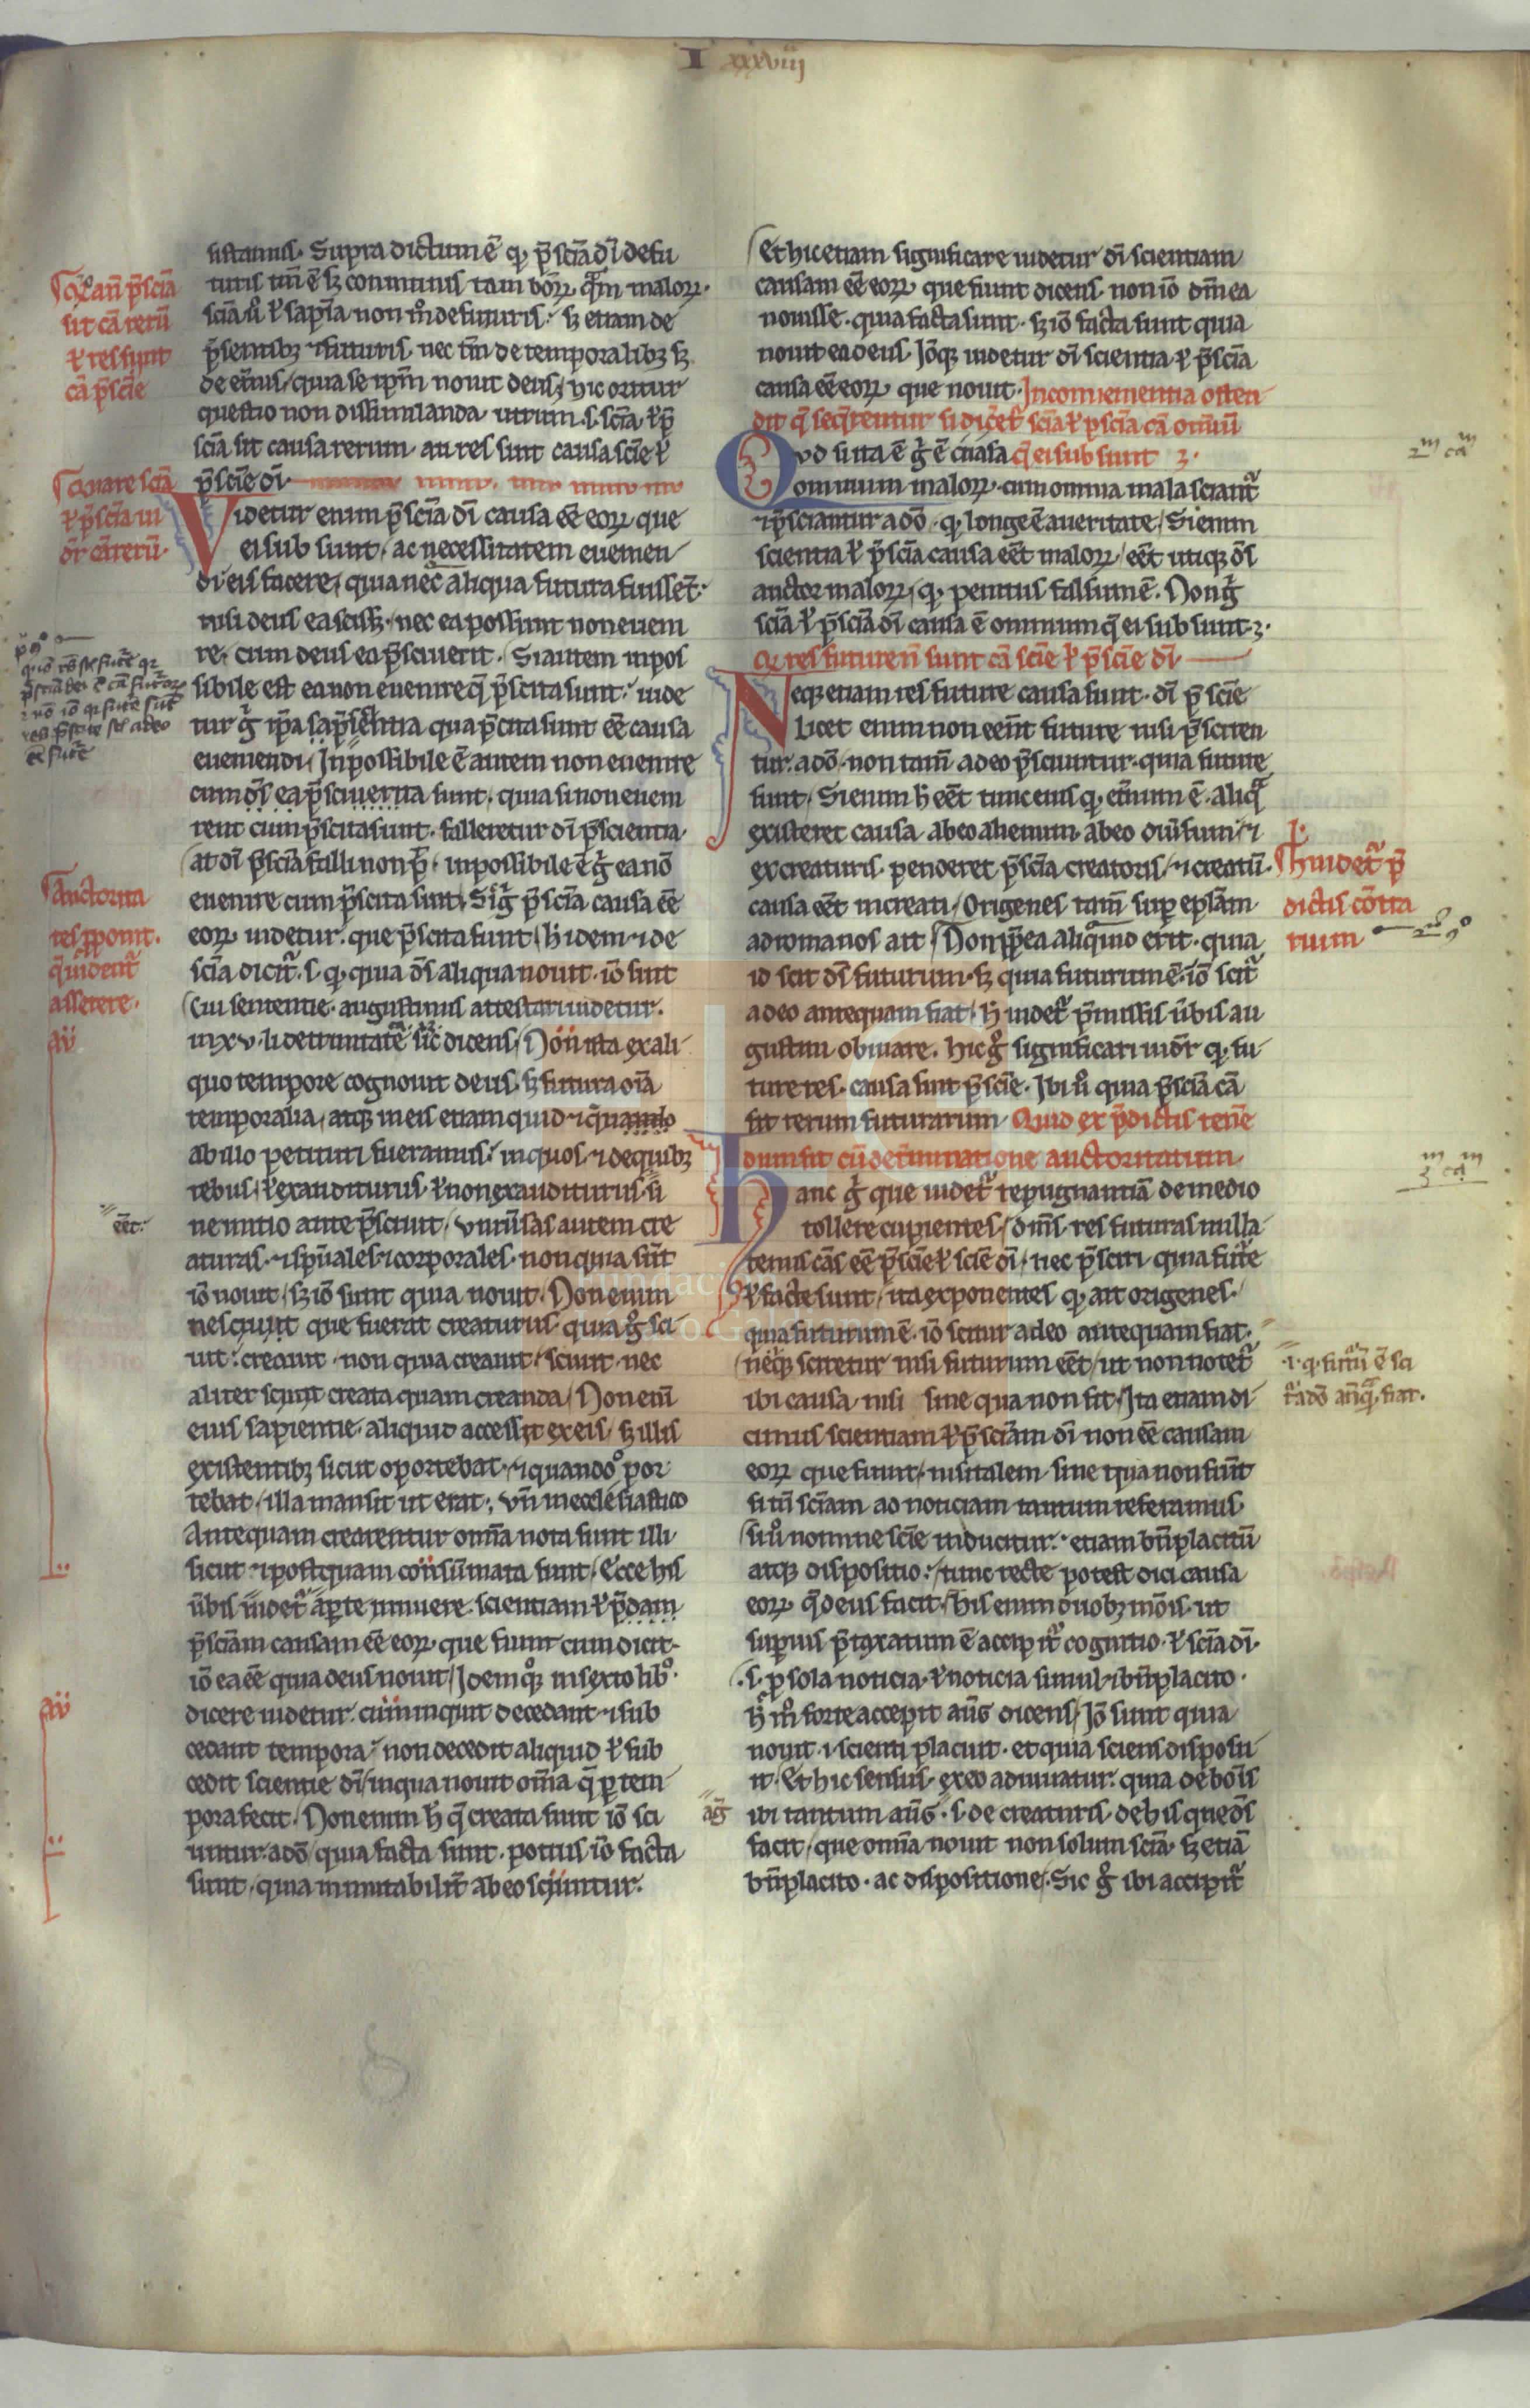 I xxxviij
sistamus. Supra dictum ē ꝙ p̄sciā dī de fu
turis tm̄ ē sꝫ cōmunis tam bōꝝ qͣm maloꝝ.
sciā ū ł sapīa non m̊ de futuris. sꝫ etiam de
p̄sentibꝫ ⁊ futuris. nec tm̄ de temporalibꝫ sꝫ
de et̄nis/ quia se ip̄m nouit deus/ hic oritur
questio non dissimulanda. utrum .s. sciā ł p̄
sciā sit causa rerum. an res sunt causa scīe ł
p̄scīe dī.
Videtur enim p̄sciā dī causa eē eoꝝ que
ei subsunt/ ac necessitatem euenien
di eis facere/ quia nec aliqua futura fuissēt.
nisi deus ea scissꝫ. nec ea possunt non eueni
re. cum deus ea p̄sciuerit. Si autem inpos
sibile est ea non euenire q̄ p̄scita sunt. uide
tur gͥ ip̄a sap̄sentia qua p̄scita sunt eē causa
eueniendi/ Inpossibile ē autem non euenire
cum d̄s ea p̄sciuerita sunt. quia si non eueni
rent cum p̄scita sunt. falleretur dī p̄scientia.
at dī p̄sciā falli non pͭ. inpossibile ē gͥ ea nō
euenire cum p̄scita sunt/ Sic gͥ p̄sciā causa eē
eoꝝ uidetur. que p̄scita sunt/ h̄ idem ⁊ de
sciā dicitͬ. s. ꝙ quia d̄s aliqua nouit. iō sunt
Cui sententie. augustinus attestari uidetur.
in xv. li de trinitate sic dicens/ Non ista ex ali
quo tempore cognouit deus. sꝫ futura oīa
temporalia/ atqꝫ in eis etiam quid ⁊ q̄uando
ab illo petituri fueramus. in quos ⁊ de quibꝫ
rebus. ł exauditurus. ł non exauditurus. si
ne initio ante p̄sciuit/ Vniūsas autem cre
aturas. ⁊ sp̄uales. ⁊ corporales. non quia sūt
iō nouit/ sꝫ iō sunt quia nouit. Non enim
nesciuit que fuerat creaturus. quia gͦ sci
uit. creauit. non quia creauit. sciuit. nec
aliter sciuit creata quam creanda/ Non enī
eius sapientie. aliquid accessit ex eis/ sꝫ illis
existentibꝫ sicut oportebat. ⁊ quando opor
tebat/ illa mansit ut erat. Vn̄ in ecclesiastico
Antequam crearentur omīa nota sunt illi
sicut ⁊ postquam consūmata sunt/ Ecce his
ūbis uidetͬ aperte innuere. scientiam ł p̄dam
p̄sciam causam eē eoꝝ. que fiunt cum dicit.
iō ea eē quia deus nouit/ Idem qͦꝫ in sexto libͦ.
dicere uidetur. cum inquit decedant ⁊ suc
cedant tempora. non decedit aliquid ł suc
cedit scientie dī/ in qua nouit omīa q̄ ꝑ tem
pora fecit. Non enim h̄ q̄ creata sunt iō sci
untur a dō/ quia facta sunt. potius iō facta
sunt/ quia inmutabilit̄ ab eo sciuntur.
Et hic etiam significare uidetur dī scientiam
causam eē eoꝝ que fiunt dicens. non iō dm̄ ea
nouisse. quia facta sunt. sꝫ iō facta sunt quia
nouit ea deus. Iōqꝫ uidetur dī scientia ł p̄sciā
causa eē eoꝝ que nouit. Inconuenientia osten
dit q̄ seq̄rentur si dic̄etͬ sciā ł p̄sciā cā omiū
Quod si ita ē gͥ ē causa q̄ ei subsunt ʒ.
omnium maloꝝ. cum omnia mala sciantͬ
⁊ p̄sciantur a dō. ꝙ longe ē a ueritate/ Si enim
scientia ł p̄sciā causa eēt maloꝝ/ eēt utiqꝫ d̄s
auctor maloꝝ/ ꝙ penitus falsum ē. Non gͥ
sciā ł p̄sciā dī causa ē omnium q̄ ei subsunt ʒ.
Ꝙ res future n̄ sunt cā scīe ł p̄scīe dī
Neqꝫ etiam res future causa sunt. dī p̄scīe
licet enim non eēnt future nisi p̄sciren
tur. a dō. non tam̄ a deo p̄sciuntur. quia future
sunt/ Si enim h̄ eēt tunc eius ꝙ et̄num ē. aliqͣ
existeret causa. ab eo alienum ab eo diūsum/ ⁊
ex creaturis. penderet p̄sciā creatoris/ ⁊ creatū.
causa eēt increati/ Origenes tam̄ suꝑ eplam
ad romanos ait/ Non ꝓp̄ ea aliquid erit. quia
id scit d̄s futurum. sꝫ quia futurum ē. iō scitͬ
a deo antequam fiat/ h̄ uidetͬ p̄missis ūbis au
gustini obuiare. hic gͦ significari uidr̄ ꝙ fu
ture res. causa sint p̄scīe. Ibi ū quia p̄sciā cā
sit rerum futurarum. Quid ex p̄dictis tenē
dum sit cū det̄minatione auctoritatum
Hanc gͥ que uidetͬ repugnantiā de medio
tollere cupientes/ dm̄s. res futuras nulla
tenus cās eē p̄scīe ł scīe dī. nec p̄sciri quia futͥe
ł facte sunt/ ita exponentes ꝙ ait origenes.
quia futurum ē. iō scitur a deo antequam fiat.
neqꝫ sciretur nisi futurum eēt/ ut non notetͬ
ibi causa. nisi sine qua non fit. Ita etiam di
cimus scientiam ł p̄sciam dī non eē causam
eoꝝ que fiunt/ nisi talem sine qua non fiūt
si tn̄ sciam ad noticiam tantum referamus
Si ū nomine scīe inducitur. etiam bn̄placitū
atqꝫ dispositio. tunc recte potest dici causa
eoꝝ q̄ deus facit. his enim duobꝫ mōis. ut
superius p̄taxatum ē accipitͬ cognitio. ł sciā dī.
.s. ꝑ sola noticia. ł noticia simul ⁊ bn̄placito.
h̄ m̊ forte accepit auḡ dicens/ Iō sunt quia
nouit. ⁊ scienti placuit. et quia sciens disposu
it. Et hic sensus. ex eo adiuuatur. quia de bōis
ibi tantum auḡ. s. de creaturis. de his que d̄s
facit/ que omīa nouit non solum sciā. sꝫ etiā
bn̄placito. ac dispositione. Sic gͦ ibi accipitͬ
Q̄ an̄ p̄sciā
sit cā rerū
ł res sunt
cā p̄scīe
Quare sciā
ł p̄sciā ui
dr̄ cā rerū.
Auctorita
tes ꝓponit.
q̄ uident̄
asserere.
aū
eēt:
aū
aḡ
2ᵐ cāᵐ
h̄ uidetͬ p̄
dictis cōtra
rium
3ᵐ cāᵐ
.i. ꝙ futū ē sci
tͬ a dō an̄qͣ. fiat.